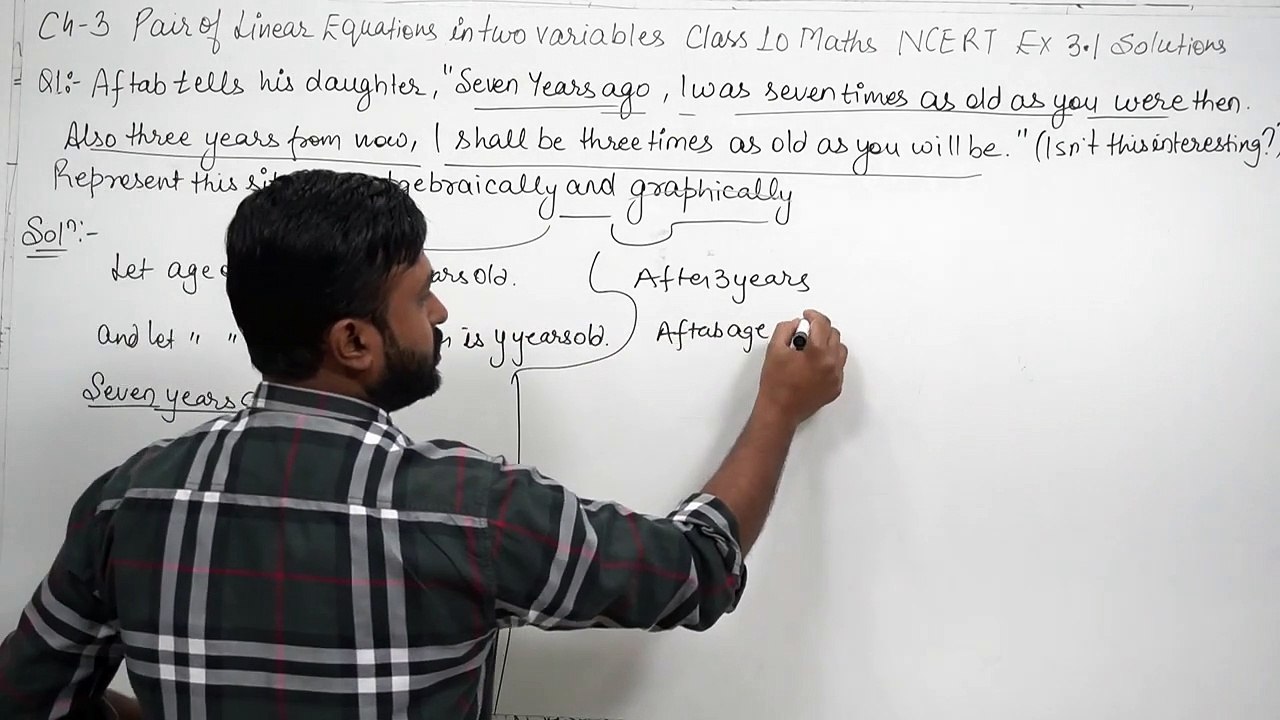 Ch-3 Pair of Linear Equations in two variables Class 10 Maths NCERT Ex 3.1 Solutions
Q1:- Aftab tells his daughter, "Seven Years ago, I was seven times as old as you were then.
Also three years from now, I shall be three times as old as you will be." (Isn't this interesting?)
Represent this algebraically and graphically
Solⁿ:-
Let age years old.
and let " " is y years old.
Seven years
After 3 years
Aftab age